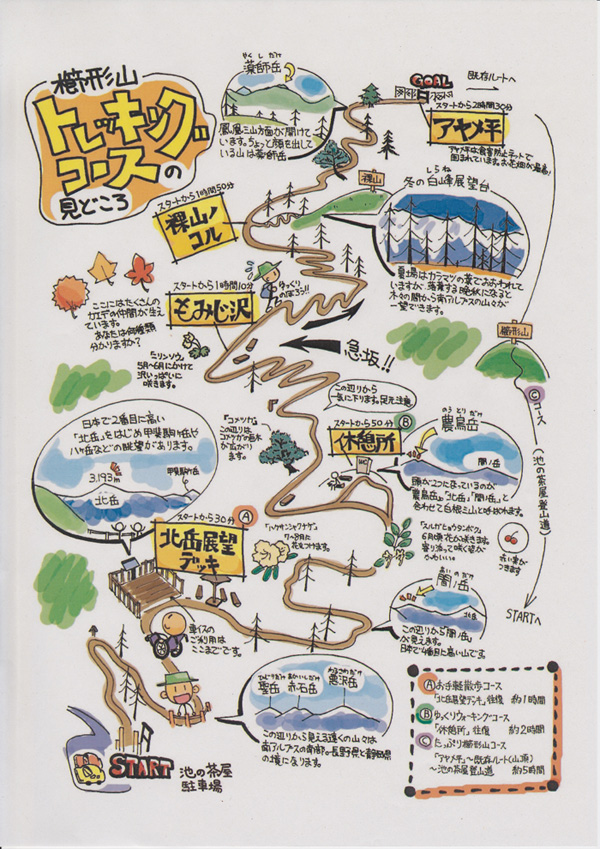 櫛形山
トレッキング
コースの
見どころ
やくしだけ
薬師岳
鳳凰三山方面が開けて
います。ちょっと顔を出して
いる山は薬師岳
GOAL
既存ルートへ
スタートから2時間30分
アヤメ平
アヤメ平は食害防止ネットで
囲まれています。お花畑が最高!
スタートから1時間50分
裸山ノ
コル
裸山
しらね
冬の白峰展望台
夏場はカラマツの葉でおおわれて
いますが、落葉する晩秋になると
木々の間から南アルプスの山々が一
望できます。
ゆっくり
のぼろう!!
スタートから1時間10分
もみじ沢
ここにはたくさんの
カエデの仲間が生え
ています。
あなたは何種類
分かりますか?
「ニリンソウ」
5月~6月にかけて
沢いっぱいに
咲きます。
急坂!!
櫛形山
この辺りから
一気に下ります。足元注意
Ⓒコース
(池の茶屋登山道)
STARTへ
日本で2番目に高い
「北岳」をはじめ甲斐駒ヶ岳や
八ヶ岳などの眺望があります。
3,193m
甲斐駒ヶ岳
北岳
「コメツガ」
この辺りは
コメツガの巨木
が広がり
ます。
スタートから50分
Ⓑ
休憩所
のうとりだけ
農鳥岳
間ノ岳
頭が2つになっているのが
農鳥岳。「北岳」「間ノ岳」と
合わせて白根三山と呼ばれます。
スタートから30分
Ⓐ
北岳展望
デッキ
「ハクサンシャクナゲ」
7~8月に
花をつけます。
「スルガヒョウタンボク」
6月頃花が咲きます。
寄り添って咲く姿が
かわいい。
赤い実が
つきます
あいのだけ
間ノ岳
北岳
この辺りから「間ノ岳」
が見えます。
日本で4番目に高い山です
車イスの
ご利用は
ここまでです。
ひじりだけ
聖岳
あかいしだけ
赤石岳
わるさわだけ
悪沢岳
この辺りから見える遠くの山々は
南アルプスの南部の長野県と静岡県
の境になります。
START
池の茶屋
駐車場
Ⓐお手軽散歩コース
「北岳展望デッキ」往復 約1時間
Ⓑゆっくりウォーキングコース
「休憩所」往復 約2時間
Ⓒたっぷり櫛形山コース
「アヤメ平」~既存ルート(山頂)
~池の茶屋登山道 約5時間